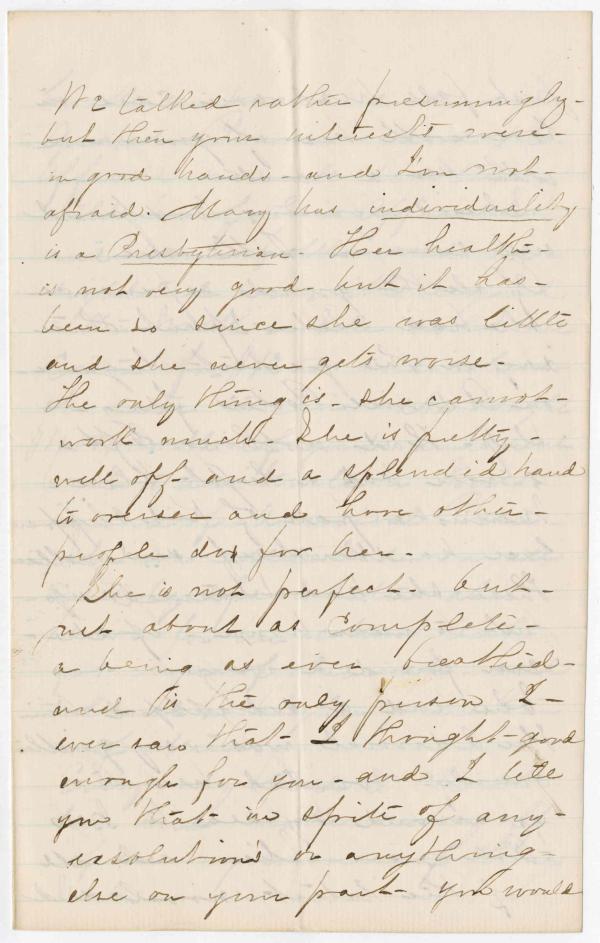 We talked rather presumingly-
but then your interests were-
in good hands- and I'm not-
afraid. Mary has individuality
is a Presbyterian. Her health-
is not very good- but it has-
been so since she was little
and she never gets worse-
The only thing is- she cannot-
work much- She is pretty-
well off- and a splendid hand
to oversee and have other-
people do for her-
She is not perfect- but-
just about as complete-
a being as ever breathed-
and is the only person I-
ever saw that- I thought- good
enough for you- and I tell
you that in sprite of any-
resolutions or anything-
else on your part- you would